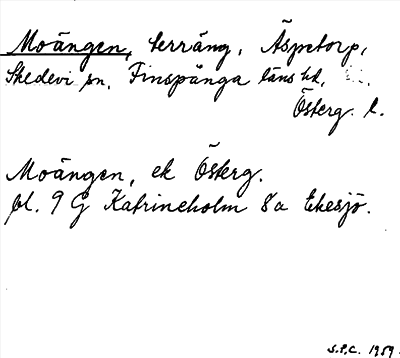 Moängen, terräng, Äspetorp,
Skedevi sn, Finspånga läns hd,
Österg. l.
Moängen, ek Österg.
bl. 9 G Katrineholm 8a Ekesjö.
S.P.C. 1959.